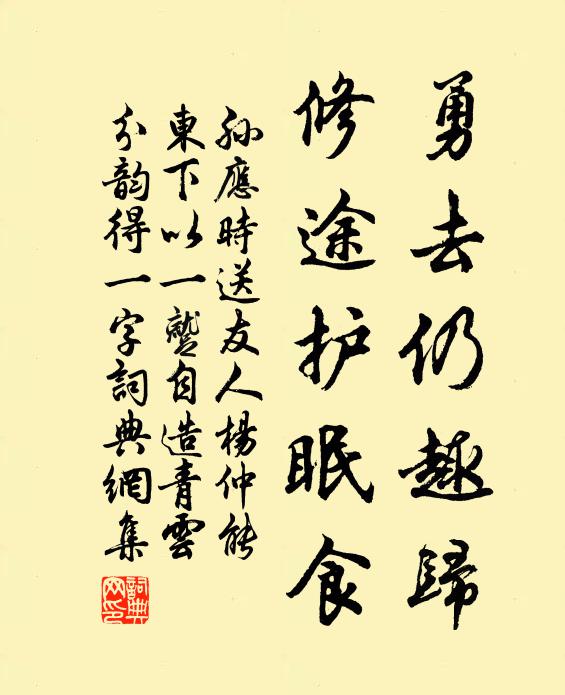 勇去仍趣歸
修途护眠食
孙應時送友人楊仲能
東下以一蹔自造青雲
分韵得一字詞典網集
詞典网印